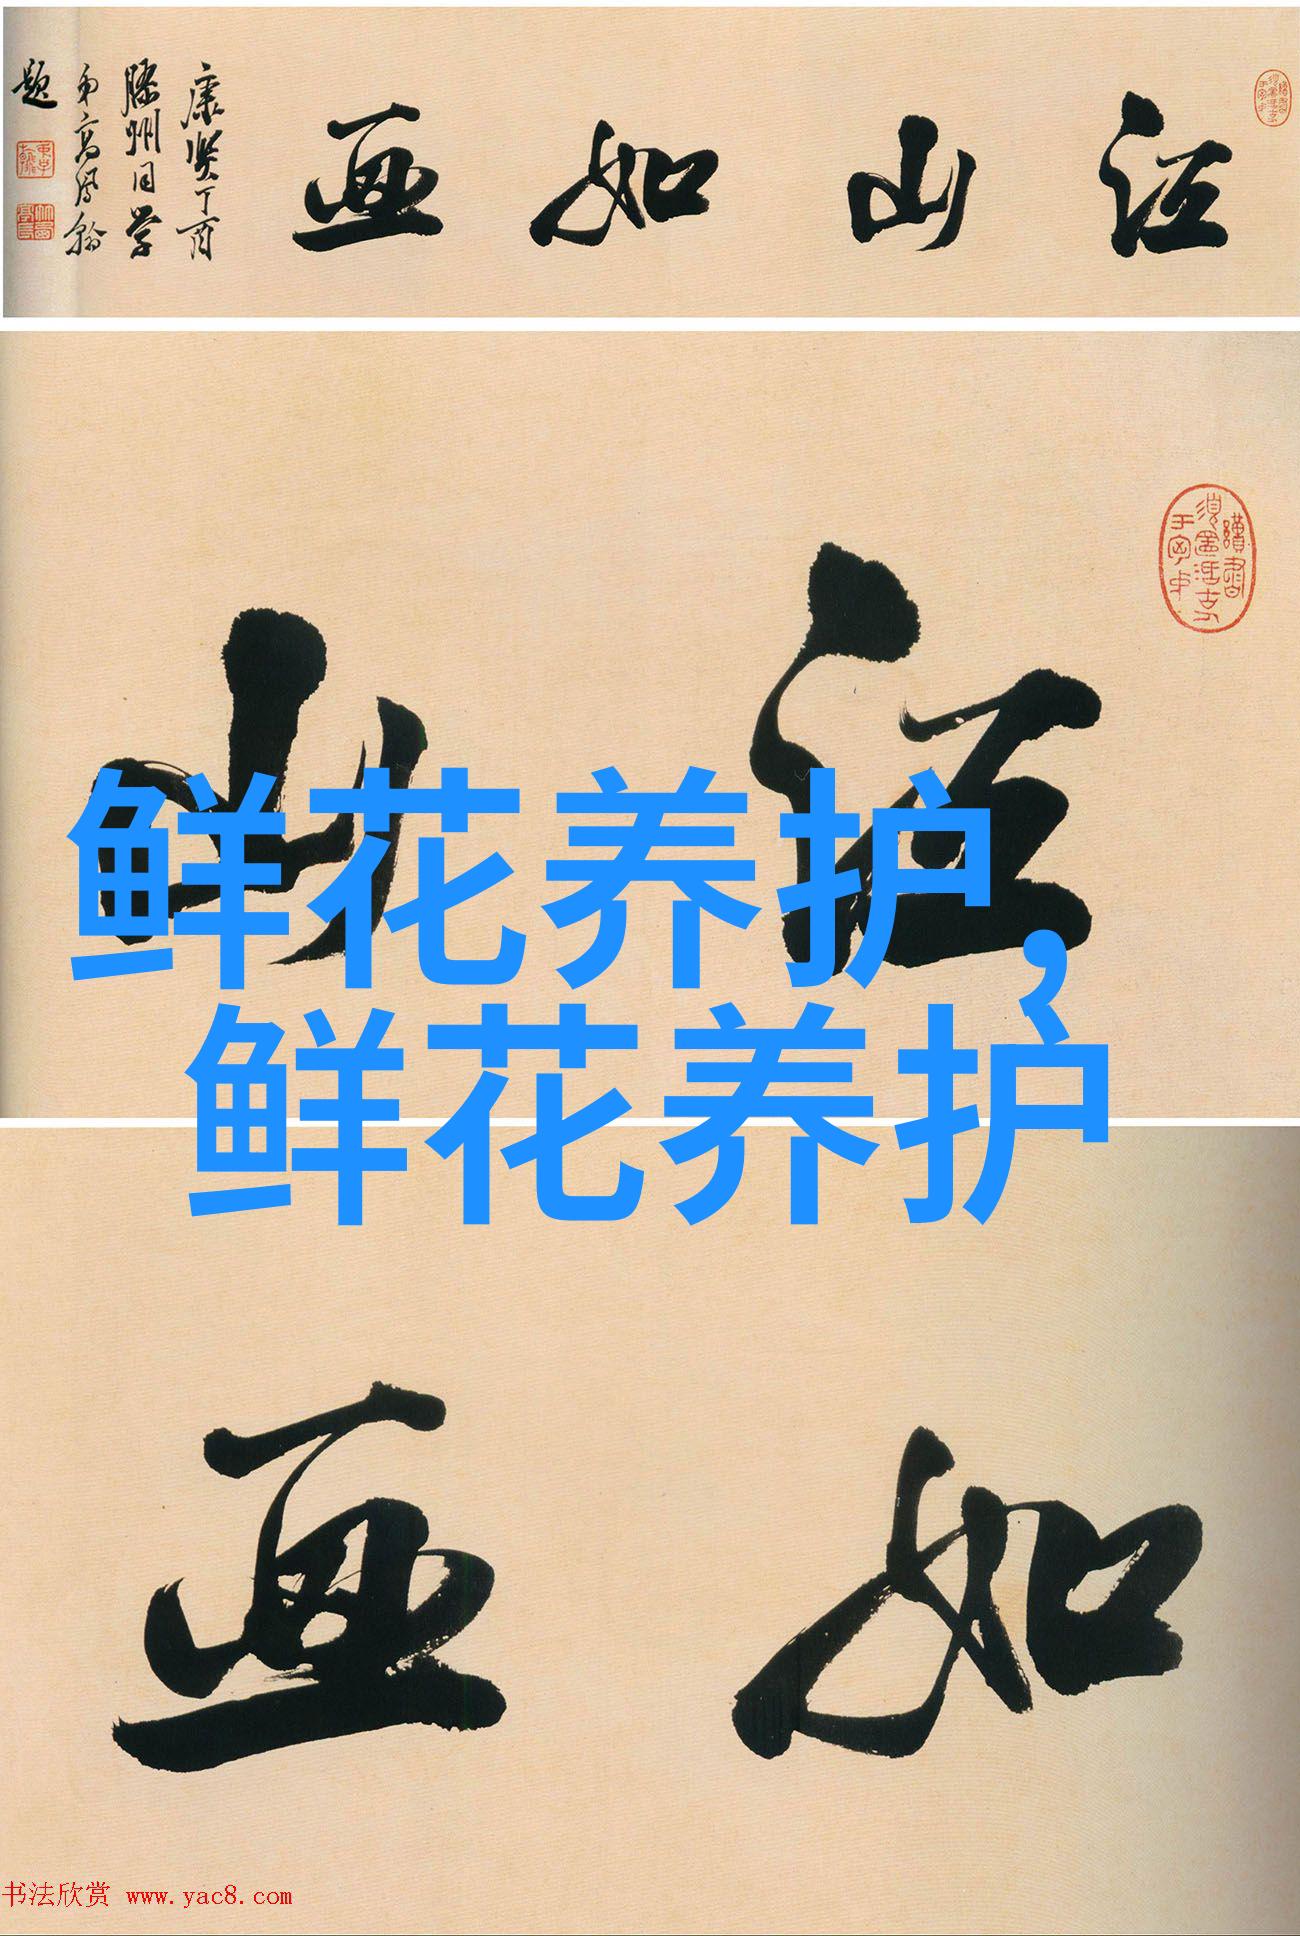 江山如画
康熙丁酉
滕州同学
弟高凤翰
题
江山
鲜花养护，
鲜花养护
如画
书法欣赏 www.yac8.com